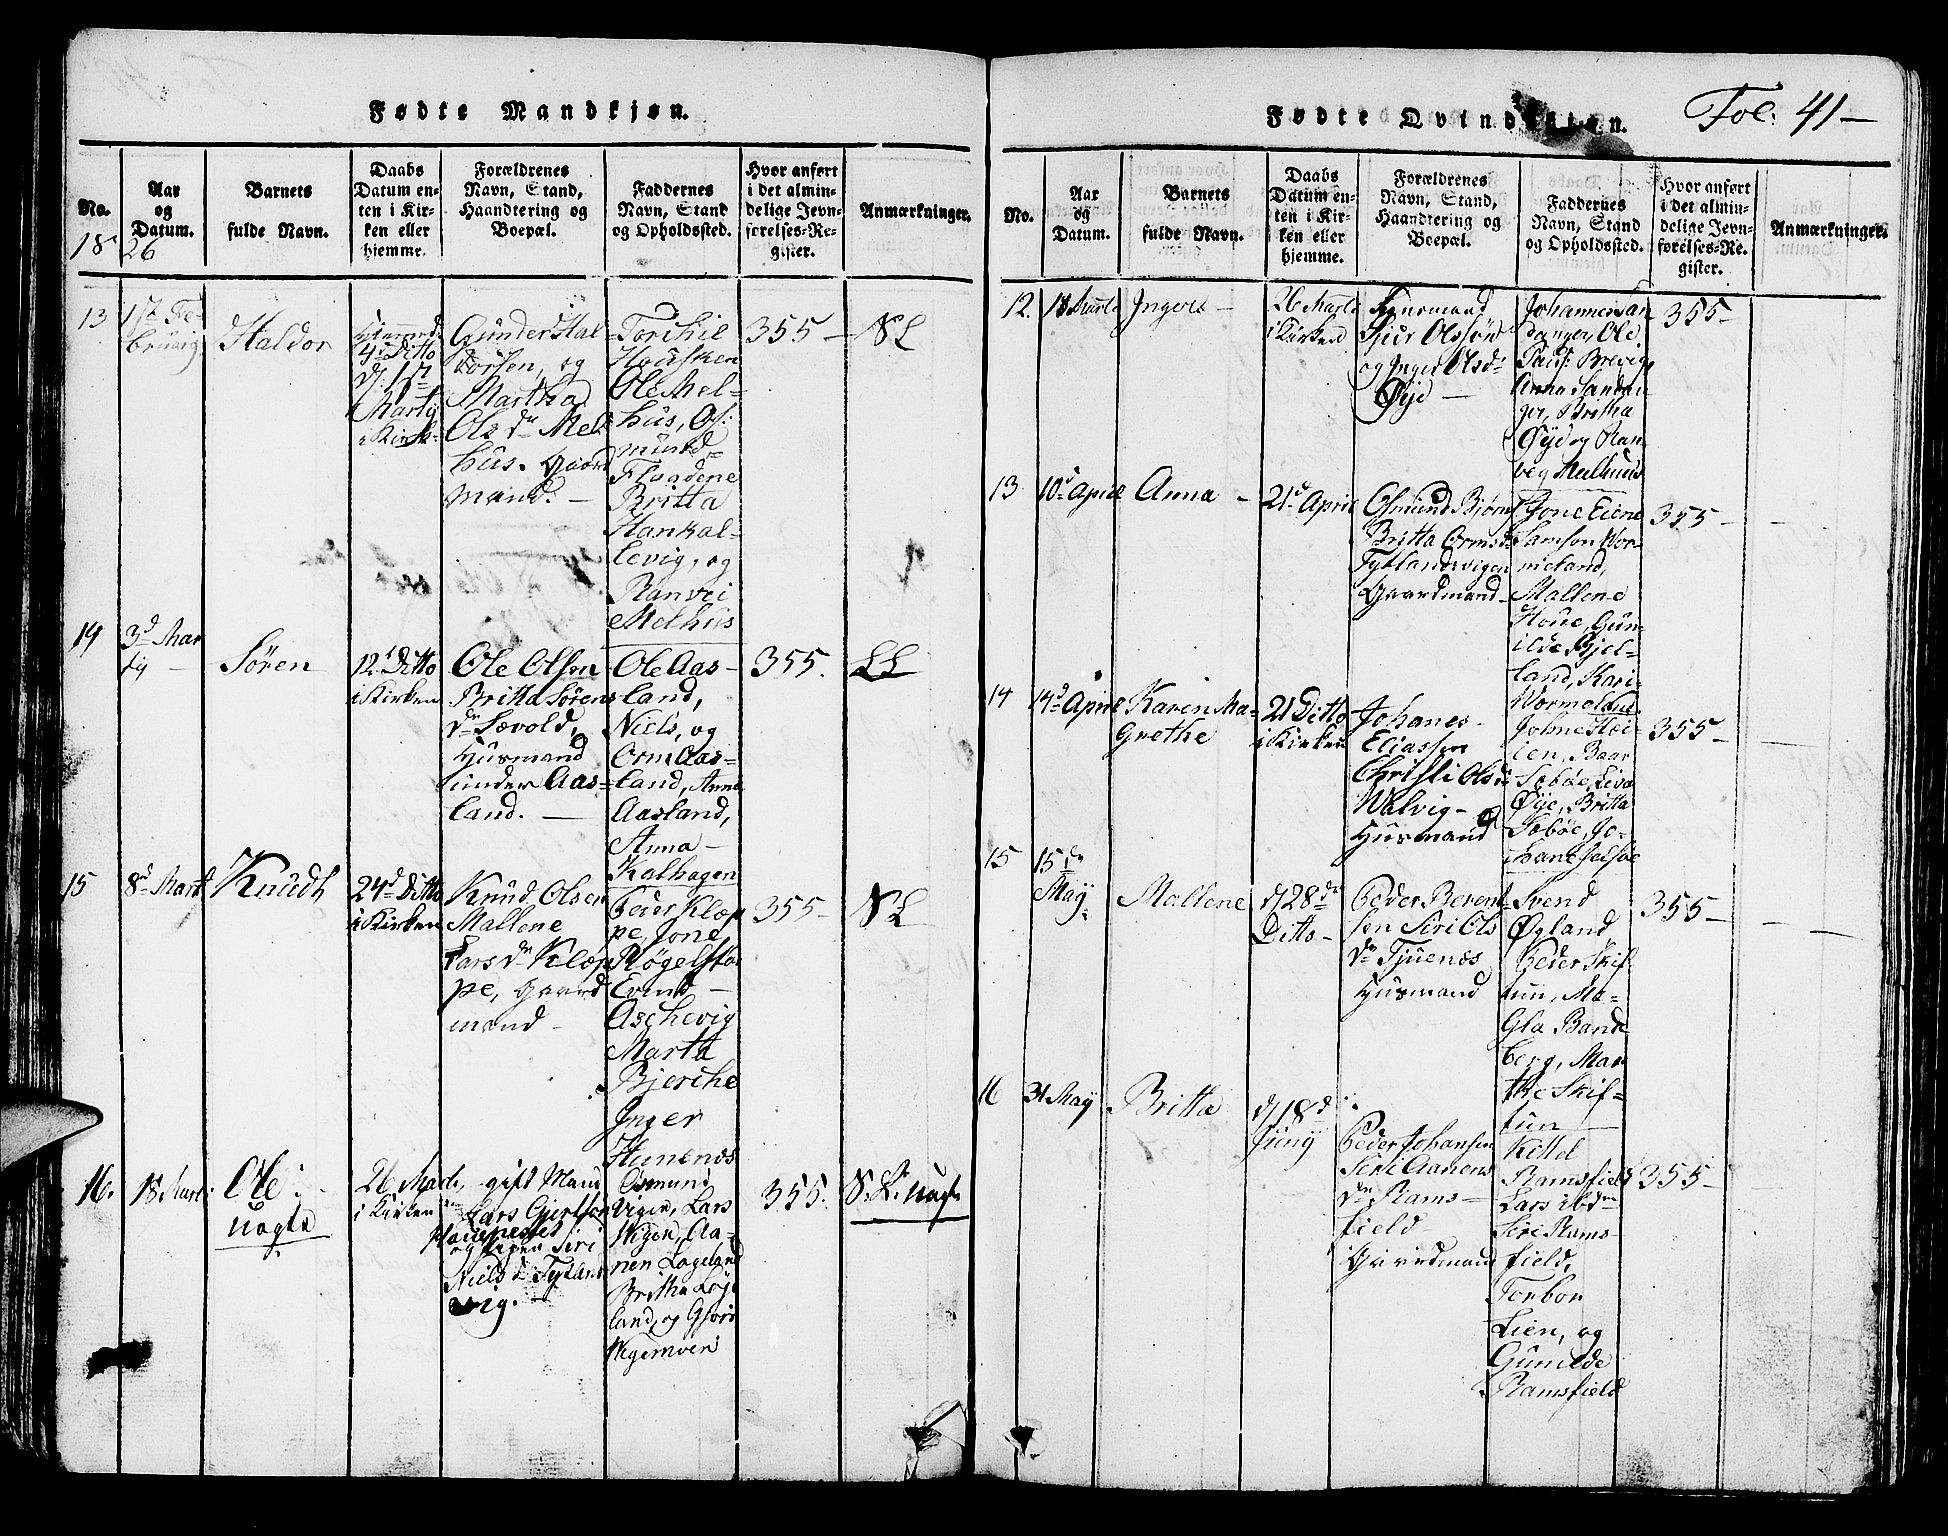 Fødte Mandkjøn.
No.
Aar
og
Datum.
Barnets
fulde Navn.
Daabs
Datum en-
ten i Kir-
ken eller
hjemme.
Forældrenes
Navn, Stand,
Haandtering og
Boepæl.
Faddernes
Navn, Stand
og Opholdssted.
Hvor anført
i det almin-
delige Jevn-
førelses-Re-
gister.
Anmærkninger.
1826
13
Haldor
4de Ditto
d. 1ste
Marty
i Kirk.
Gunder Hal-
dorsen, og
Martha
Ols dr Mel-
hus. Gaard
mand. —
Torchil
Housken
Ole Mel-
hus, Os-
mund
Flaadene
Britta
Hankal-
levig, og
Ranvei
Melhus
355 —
SL
14
3d Mar
ty —
Søren
12 Ditto
i Kirken
Ole Olsen
Britta Sørens
dr Løvold,
Husmand
under Aas-
land. —
Ole Aas-
land,
Niels, og
Orm Aas-
land, Anna
Aasland,
Anna
Kalhagen
355.
LL
15
8d Mart
Knudh
24d Ditto
i Kirken
Knud Olsen
Mallene
Lars dr Klep
pe, Gaard
mand —
Peder Klep
pe, Jone
Evind —
Aschevig
Marta
Bjerche
Inger
Hunenæs
355 —
SL
16.
18 Marti
Ole
uægte
26 Marti
i Kirken
gift Mand
Lars Gjertsen
og Pigen Siri
Niels dr Tytlands
vig. —
Osmund
Vigen, Lars
Wigen, Aa-
nen Løgeland
Britha Løge
land, og
355.
S. L. uægte
Fødte Qvindkjøn.
Fol: 41 —
No.
Aar
og
Datum.
Barnets
fulde Navn.
Daabs
Datum en-
ten i Kir-
ken eller
hjemme.
Forældrenes
Navn, Stand,
Haandtering og
Boepæl.
Faddernes
Navn, Stand
og Opholdssted.
Hvor anført
i det almin-
delige Jevn-
førelses-Re-
gister.
Anmærkninger.
12.
18 Marti
Ingers —
26 Marti
i Kirken
Huusmand
Sjur Olssøn
og Inger Olsdr
Øye —
Johannes San
danger, Ole
Brevig
Anna Sandan
ger, Britha
Øye og Ran
veg Meelhuus
355 —
13
10d April
Anna —
21d April
Osmund Bjørn
Britta Ormsd
Tytlandsvigen
Gaardmand —
Jone Eiene
Samson Wor-
meland,
Mallene
Houe, Gun-
ilde Bjel-
land, Kari
355 —
14
14d April
Karen Ma-
Grethe
21 Ditto
i Kirken
Johanes
Eliassen
Christi Olsd
Walvig —
Husmand
ien, Baar
Søbøe, Liva
Øye, Britta
Søbøe, Jo-
355 —
15
15de
May
Mallene
d/28de
Ditto —
Peder Berent-
sen Siri Ols
dr Tjuenæs
Husmand
Svend
Øgland
Peder Skif-
tun, Ma-
Gla Bande
berg, Mar
the Skif-
tun
355 —
16
31 May
Britta
d/18d
Juny
Peder Johansen
Siri Aanens
dr Rams-
field
Gaardmand
Kittel
Ramsfield
Lars ibdm
Siri Rams-
field,
Torbor
Lien, og
Gunilde
Ramsfield
355 —